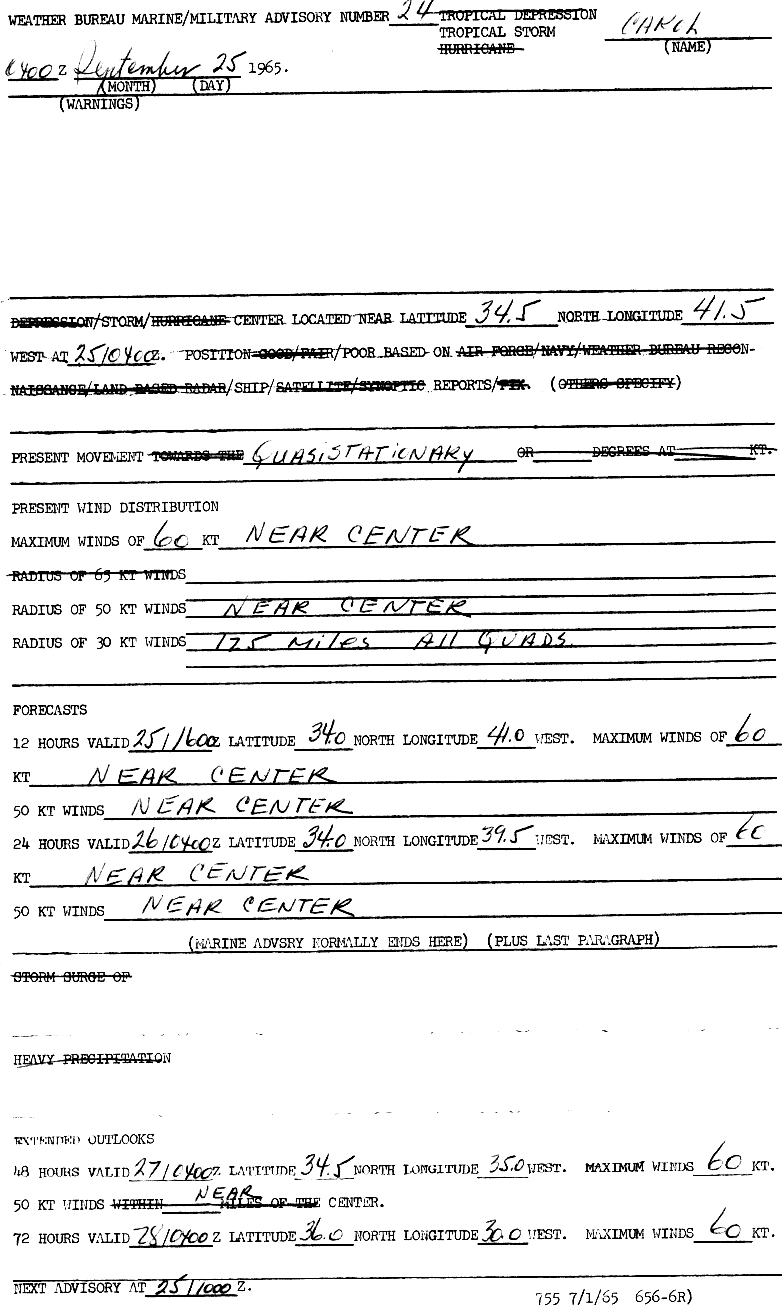 WEATHER BUREAU MARINE/MILITARY ADVISORY NUMBER 24 TROPICAL DEPRESSION CAROL
TROPICAL STORM
HURRICANE (NAME)
0400 Z September 25 1965.
(MONTH) (DAY)
(WARNINGS)
DEPRESSION/STORM/HURRICANE CENTER LOCATED NEAR LATITUDE 34.5 NORTH LONGITUDE 41.5
WEST AT 25/0400Z. POSITION GOOD/FAIR/POOR BASED ON AIR FORCE/NAVY/WEATHER BUREAU RECON-
NAISSANCE/LAND BASED RADAR/SHIP/SATELLITE/SYNOPTIC REPORTS/FIX. (OTHERS SPECIFY)
PRESENT MOVEMENT TOWARDS THE QUASISTATIONARY OR DEGREES AT KT.
PRESENT WIND DISTRIBUTION
MAXIMUM WINDS OF 60 KT NEAR CENTER
RADIUS OF 65 KT WINDS
RADIUS OF 50 KT WINDS NEAR CENTER
RADIUS OF 30 KT WINDS 125 Miles All QUADS.
FORECASTS
12 HOURS VALID 25/1600Z LATITUDE 34.0 NORTH LONGITUDE 41.0 WEST. MAXIMUM WINDS OF 60
KT NEAR CENTER
50 KT WINDS NEAR CENTER
24 HOURS VALID 26/0400Z LATITUDE 34.0 NORTH LONGITUDE 39.5 WEST. MAXIMUM WINDS OF 60
KT NEAR CENTER
50 KT WINDS NEAR CENTER
(MARINE ADVSRY NORMALLY ENDS HERE) (PLUS LAST PARAGRAPH)
STORM SURGE OF
HEAVY PRECIPITATION
EXTENDED OUTLOOKS
48 HOURS VALID 27/0400Z LATITUDE 34.5 NORTH LONGITUDE 35.0 WEST. MAXIMUM WINDS 60 KT.
50 KT WINDS WITHIN NEAR MILES OF THE CENTER.
72 HOURS VALID 28/0400 Z LATITUDE 36.0 NORTH LONGITUDE 30.0 WEST. MAXIMUM WINDS 60 KT.
NEXT ADVISORY AT 25/1000 Z.
755 7/1/65 656-6R)